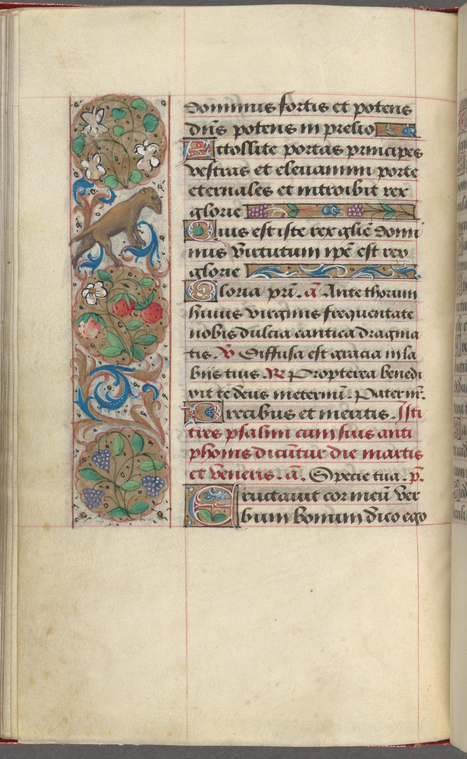 Dominus fortis et potens
dñs potens in prelio
Attollite portas principes
vestras et elevamini porte
eternales et introibit rex
glorie
Quis est iste rex glie domi
nus virtutum ipẽ est rex
glorie
Gloria pri. a. Ante thorum
huius virginis frequentate
nobis dulcia cantica dragma
tis. V Diffusa est gracia in la
biis tuis. R Propterea benedi
xit te deus ineternũ. Pater nr.
Precibus et meritis. Isti
tres psalmi cum suis anti
phonis dicũtur die martis
et veneris. a. Specie tua. p.
Eructavit cor meũ ver
bum bonum dico ego